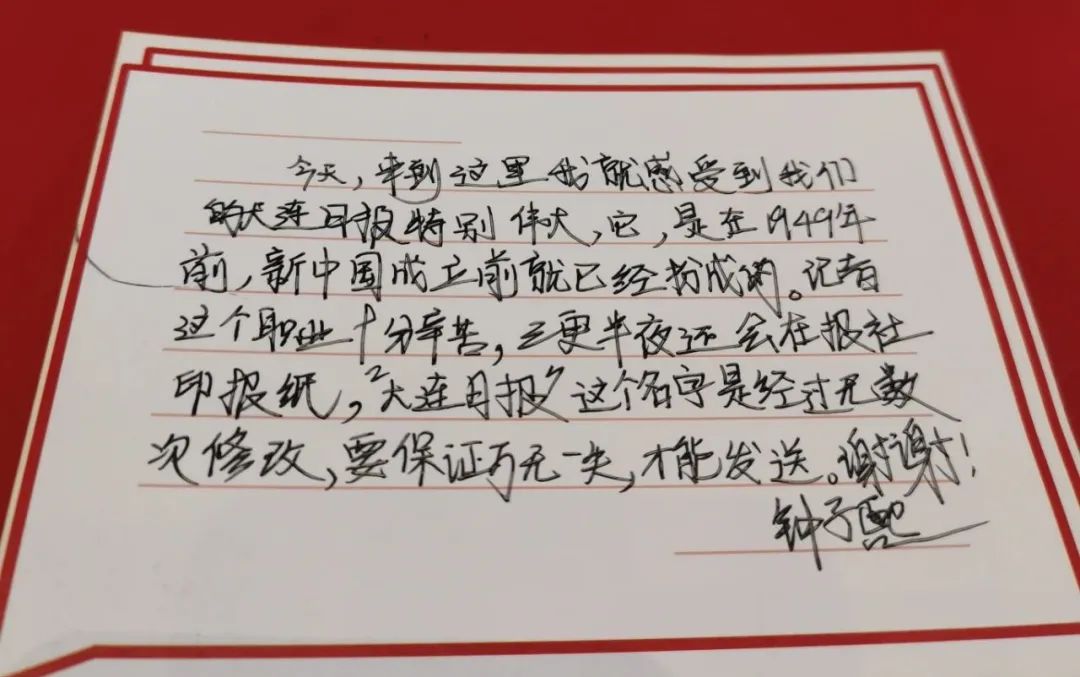 今天，来到这里我就感受到我们
的大连日报特别伟大，它，是在1949年
前，新中国成立前就已经成。记者
这个职业十分辛苦，三更半夜还会在报社
印报纸，"大连日报"这个名字是经过无数
次修改，要保证万无一失，才能发送。谢谢！
钟子熙